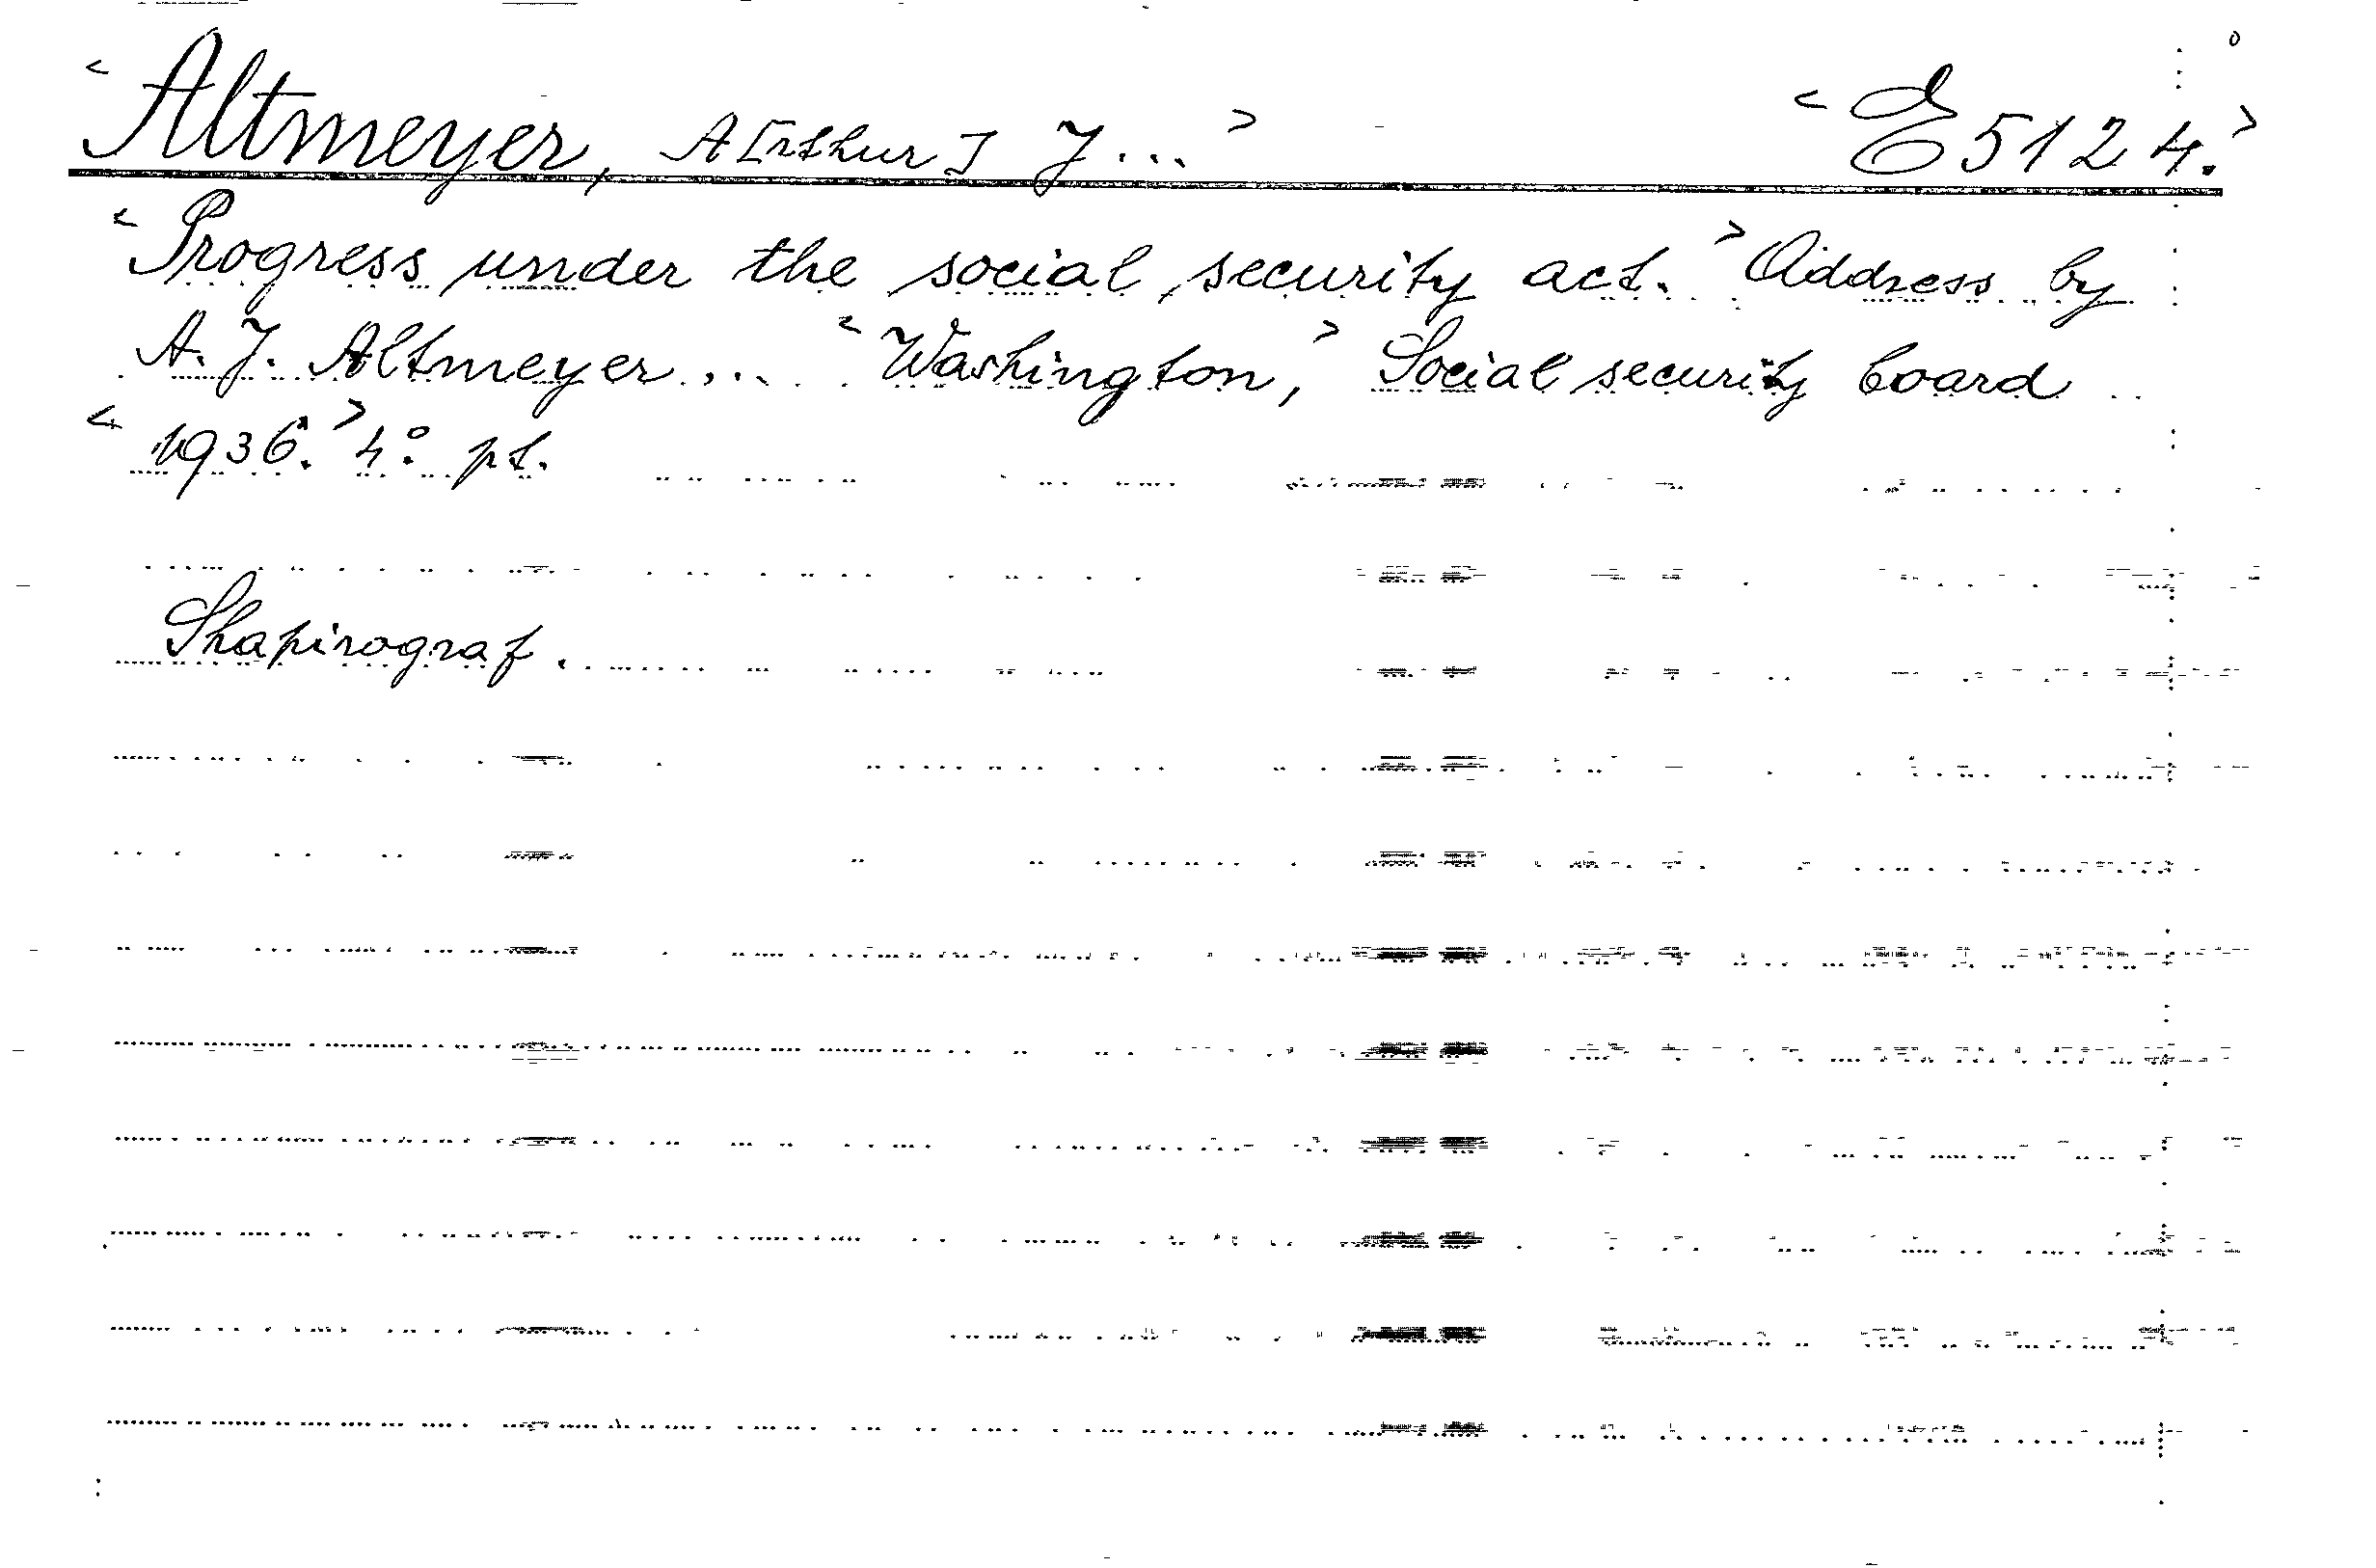 <Altmeyer, A[rthur] J...> <E 5124.>
<Progress under the social security act.> Address by
A. J. Altmeyer... <Washington,> Social security board
<1936.> 4° pt.
Shapirograf.